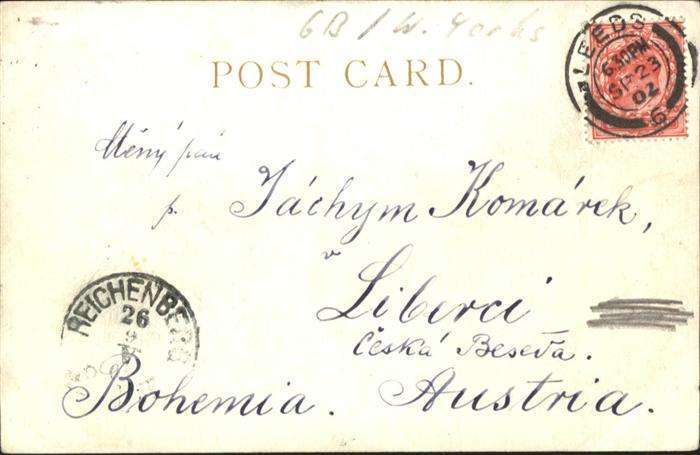 GB / W. Yorks
POST CARD.
LEEDS
6.30PM
SP 23
02
6
pán
p. Jáchym Komárek,
v
Liberci
Česká Beseda.
REICHENBERG
26
Bohemia. Austria.